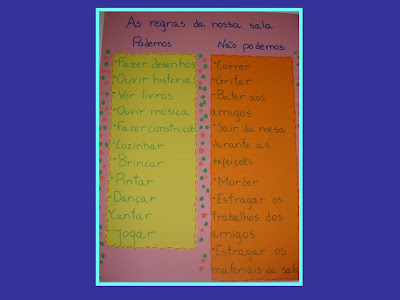 As regras da nossa sala
Podemos
-Fazer desenhos
-Ouvir histórias
-Ver livros
-Ouvir música
-Fazer construções
-Cozinhar
-Brincar
-Pintar
-Dançar
-Cantar
-Jogar
Não podemos:
-Correr
-Gritar
-Bater aos
amigos
-Sair da mesa
durante as
refeições
-Morder
-Estragar os
trabalhos dos
amigos
-Estragar os
materiais da sala